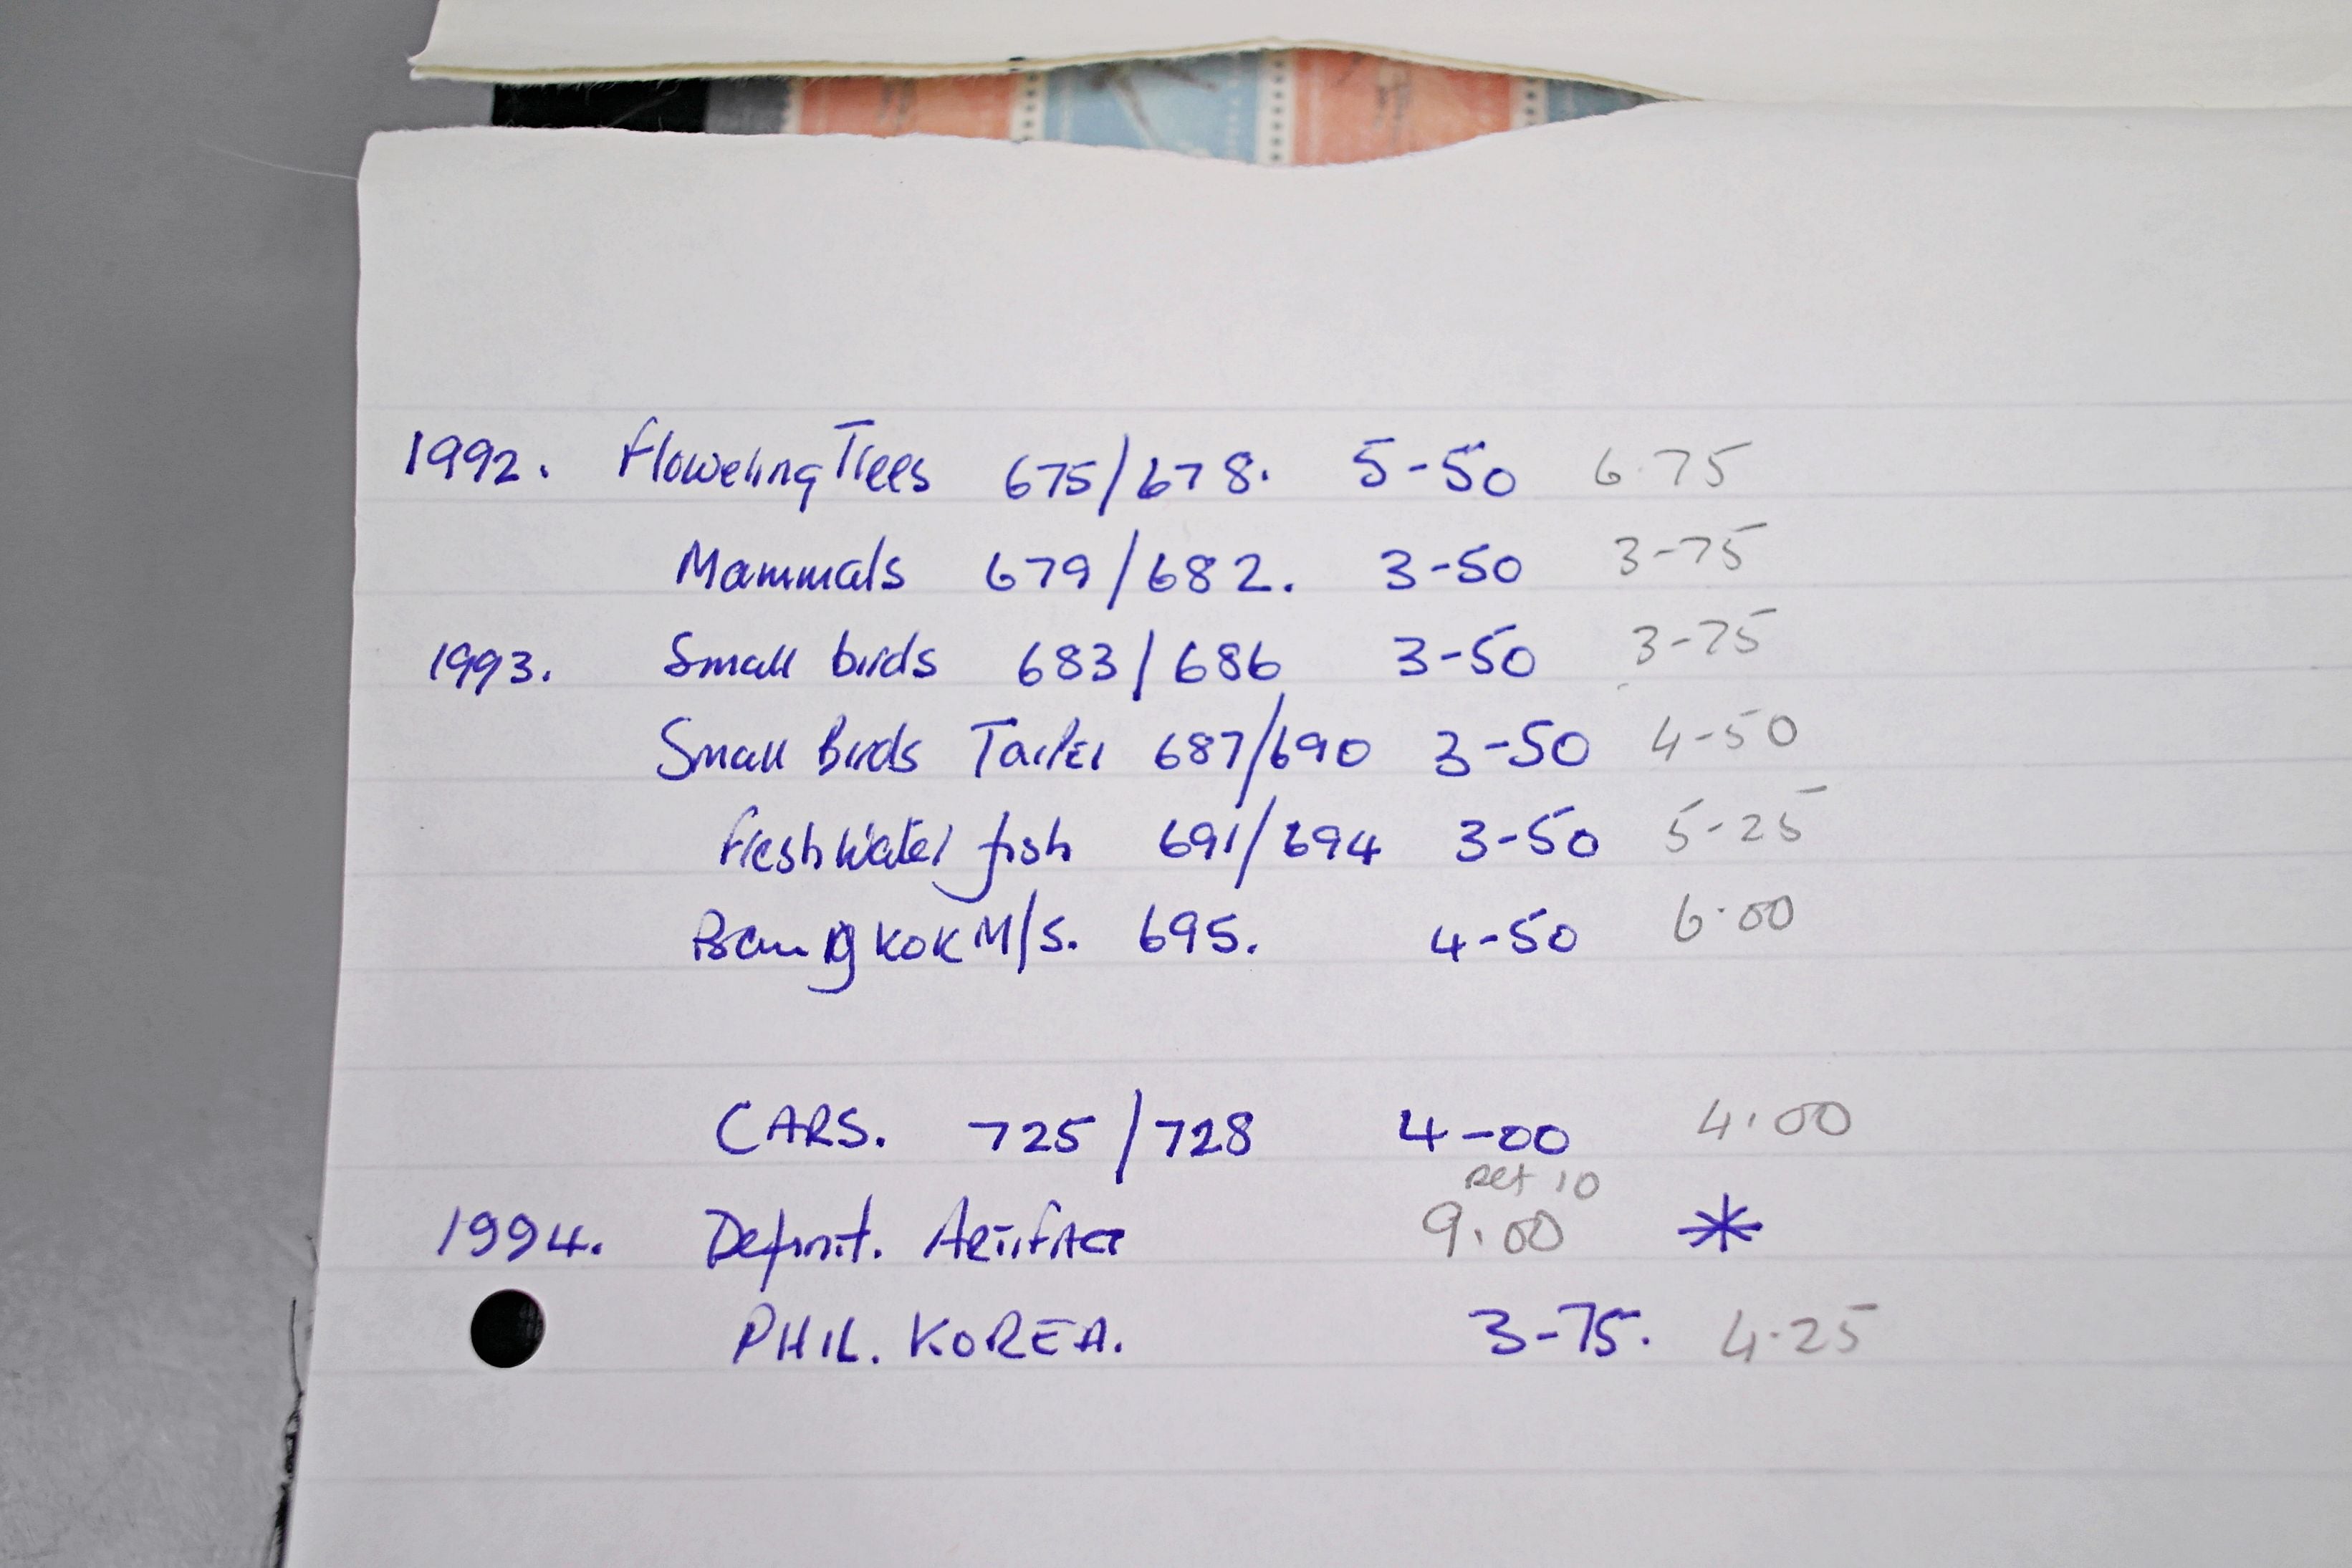 1992. Flowering Trees 675/678. 5-50 6.75
Mammals 679/682. 3-50 3-75
1993. Small birds 683/686 3-50 3-75
Small Birds Taipei 687/690 3-50 4-50
Freshwater fish 691/694 3-50 5-25
Bangkok M/S. 695. 4-50 6.00
CARS. 725/728 4-00 4.00
set 10
1994. Definit. Artifact 9.00 *
PHIL. KOREA. 3-75. 4.25